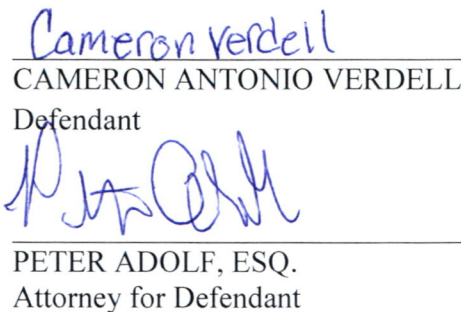 Cameron Verdell
CAMERON ANTONIO VERDELL
Defendant
PETER ADOLF, ESQ.
Attorney for Defendant